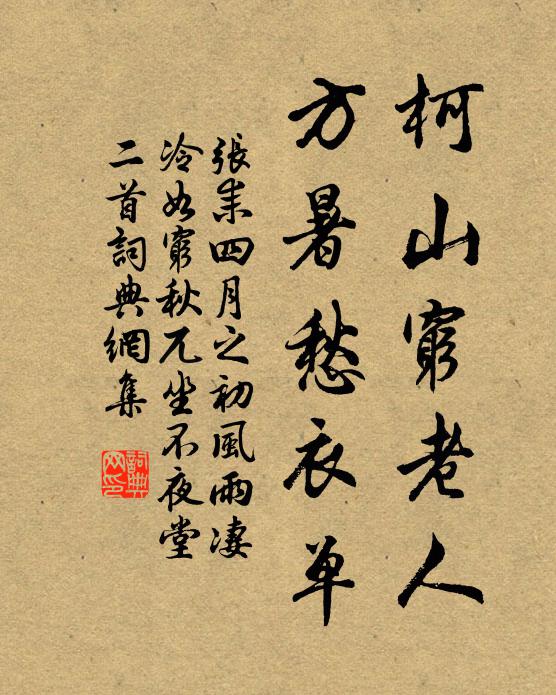 柯山窮老人
方暑愁衣单
張耒四月之初風雨凄
冷如窮秋兀坐不夜堂
二首詞典網集
詞典
网印